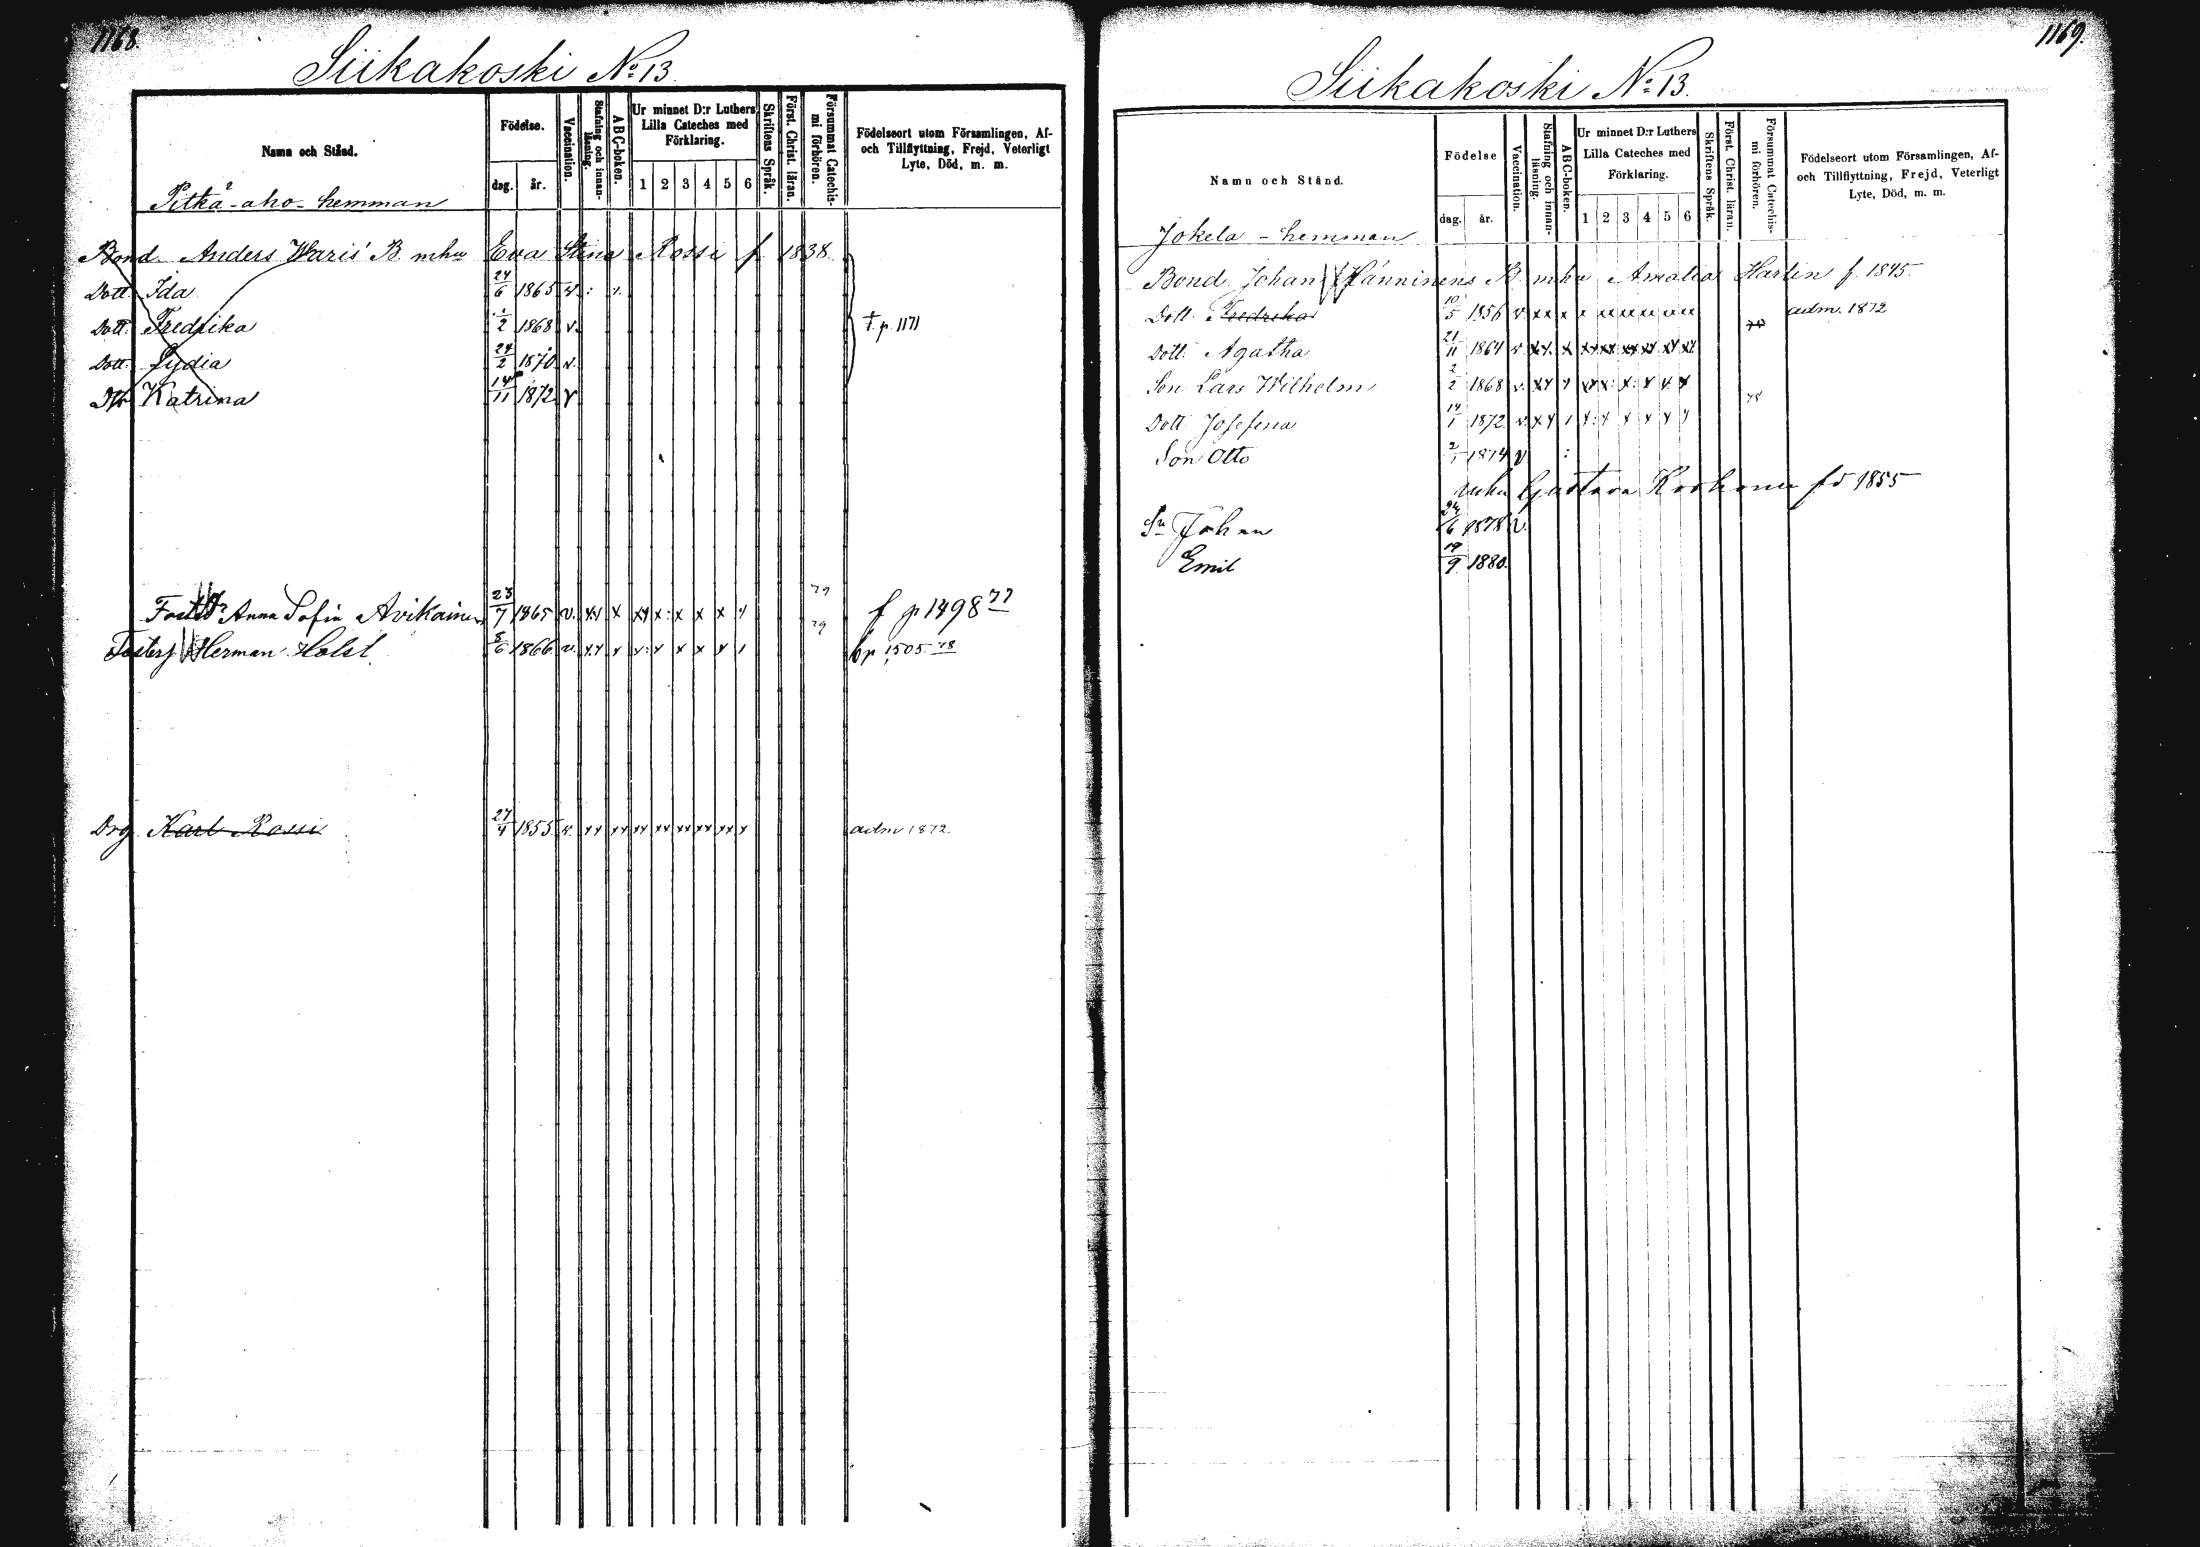 1168.
Siikakoski No 13.
Namn och Stånd.
Födelse.
dag. år.
Vaccination.
Stafning och innanläsning.
ABC-boken.
Ur minnet D:r Luthers Lilla Cateches med Förklaring.
1 2 3 4 5 6
Skriftens Språk.
Först. Christ. läran.
Försummat Catechismi förhören.
Födelseort utom Församlingen, Af- och Tillflyttning, Frejd, Veterligt Lyte, Död, m. m.
Pitkä-aho-hemman
Bond. Anders Waris' B mhu Eva Stina Rossi f 1838
Dott. Ida 24/6 1865 v.
Dott. Fredrika 1/2 1868 v. t. p. 1171
Dott. Lydia 24/2 1870 v.
Dtr Katrina 14/11 1872 v
Anna Sofia Avikainen 23/7 1865 v. xx x xx x: x x x x 79 f p 1498 77
Herman Holst 8/6 1866 v. xx x x: x x x x 79 p 1505 78
Drg. Karl Rossi 27/4 1855 v. xx xx xx xx xx xx xx x adm 1872.
1169.
Siikakoski No 13.
Namn och Stånd.
Födelse
dag. år.
Vaccination.
Stafning och innanläsning.
ABC-boken.
Ur minnet D:r Luthers Lilla Cateches med Förklaring.
1 2 3 4 5 6
Skriftens Språk.
Först. Christ. läran.
Försummat Catechismi förhören.
Födelseort utom Församlingen, Af- och Tillflyttning, Frejd, Veterligt Lyte, Död, m. m.
Jokela - hemman
Bond. Johan Hänninens B. mhu Amalia Harlin f. 1845.
Dott. Fredrika 10/5 1856 v xx x x xx xx xx xx xx adm. 1872
Dott. Agatha 21/11 1864 v xx x xx xx xx xx xx xx
Son Lars Wilhelm 2/2 1868 v. xx x xx x: x: x x x 78
Dott Josefina 14/1 1872 v. xx x x: x x x x x
Son Otto 2/1 1874 v :
mhu Gustava Korhonen fd 1855
Sn Johan 24/6 1878 v
Emil 19/9 1880.